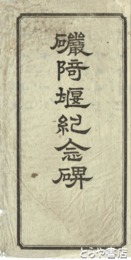 巖碕堰紀念碑
とらや書店